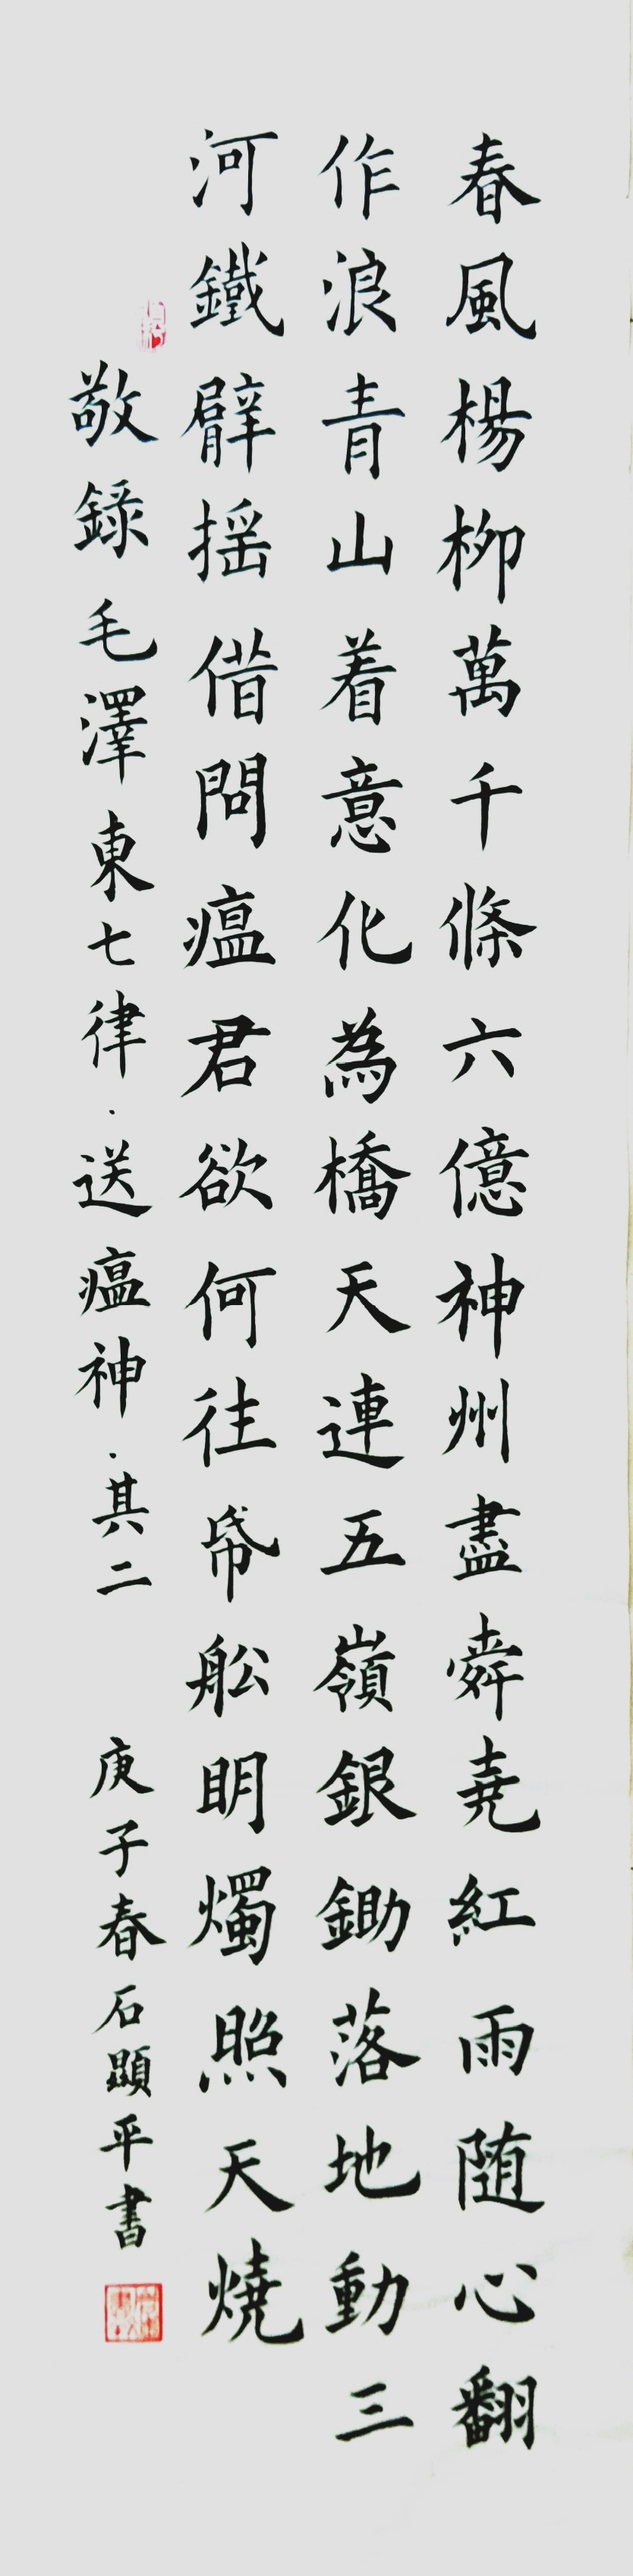 春風楊柳萬千條六億神州盡舜尭紅雨随心翻
作浪青山着意化為橋天連五嶺銀鋤落地動三
河鐵臂揺借問瘟君欲何往帋舩明燭照天燒
敬錄毛澤東七律·送瘟神·其二
庚子春石顕平書